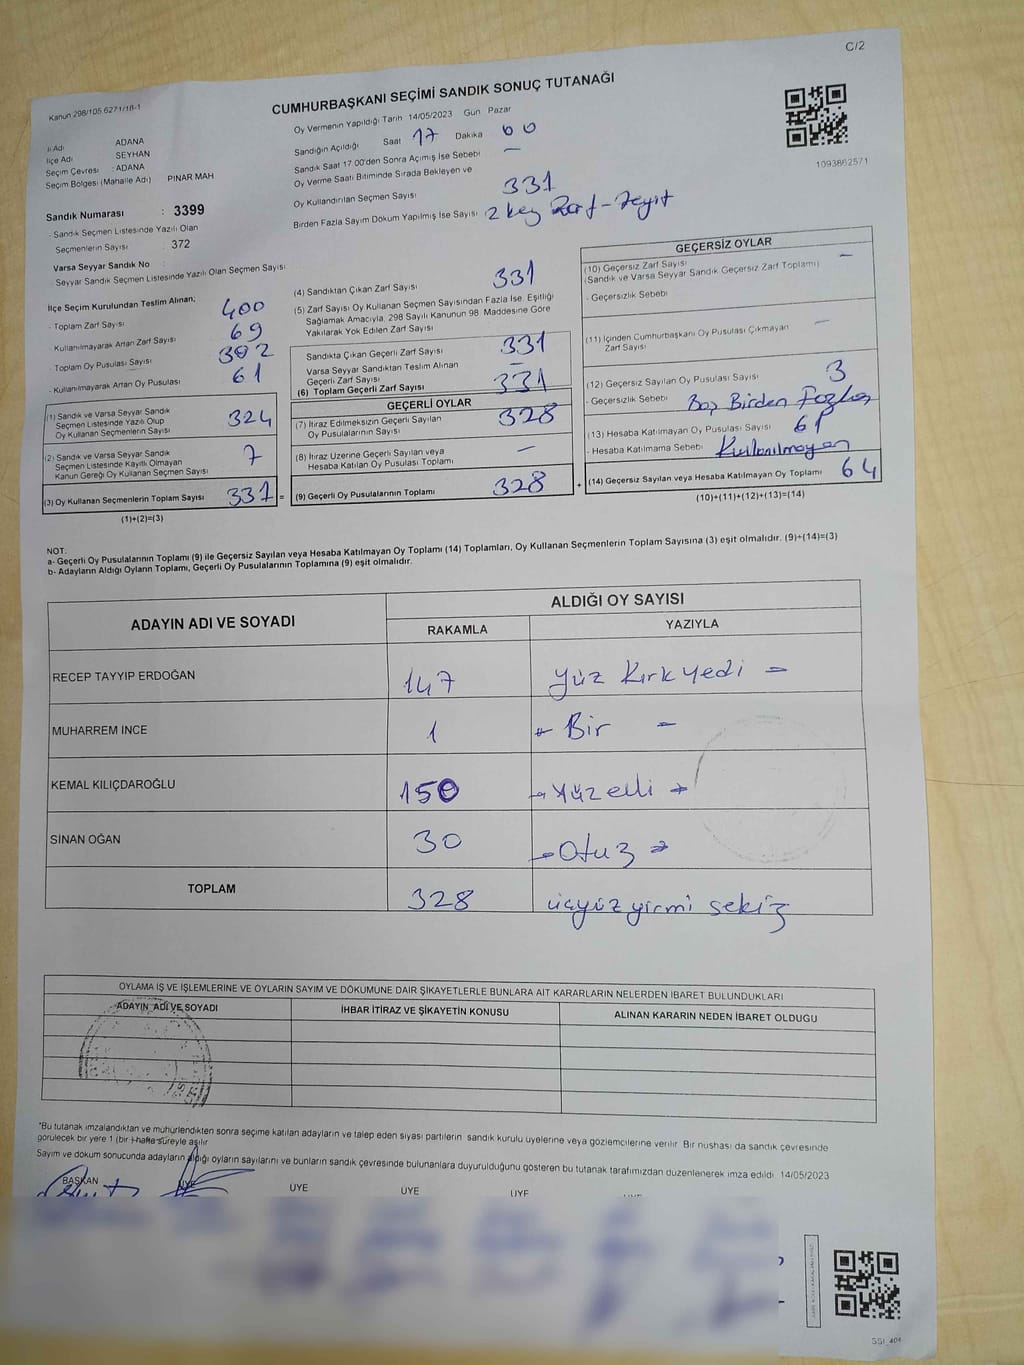 C/2
Kanun 298/105 6271/18-1
CUMHURBAŞKANI SEÇİMİ SANDIK SONUÇ TUTANAĞI
İl Adı ADANA
İlçe Adı SEYHAN
Seçim Çevresi : ADANA
Seçim Bölgesi (Mahalle Adı) PINAR MAH
Sandık Numarası : 3399
- Sandık Seçmen Listesinde Yazılı Olan
Seçmenlerin Sayısı 372
Varsa Seyyar Sandık No
- Seyyar Sandık Seçmen Listesinde Yazılı Olan Seçmen Sayısı
Oy Vermenin Yapıldığı Tarih 14/05/2023 Gün Pazar
Sandığın Açıldığı Saat 17 Dakika 00
Sandık Saat 17 00'den Sonra Açımış İse Sebebi —
Oy Verme Saati Bitiminde Sırada Bekleyen ve
Oy Kullandırılan Seçmen Sayısı 331
Birden Fazla Sayım Döküm Yapılmış İse Sayısı 2 key Zarf-Teyit
1093862571
İlçe Seçim Kurulundan Teslim Alınan;
- Toplam Zarf Sayısı 400
- Kullanılmayarak Artan Zarf Sayısı 69
- Toplam Oy Pusulası Sayısı 392
- Kullanılmayarak Artan Oy Pusulası 61
(1) Sandık ve Varsa Seyyar Sandık
Seçmen Listesinde Yazılı Olup
Oy Kullanan Seçmenlerin Sayısı 324
(2) Sandık ve Varsa Seyyar Sandık
Seçmen Listesinde Kayıtlı Olmayan
Kanun Gereği Oy Kullanan Seçmen Sayısı 7
(3) Oy Kullanan Seçmenlerin Toplam Sayısı 331 =
(1)+(2)=(3)
(4) Sandıktan Çıkan Zarf Sayısı 331
(5) Zarf Sayısı Oy Kullanan Seçmen Sayısından Fazla İse, Eşitliği
Sağlamak Amacıyla, 298 Sayılı Kanunun 98 Maddesine Göre
Yakılarak Yok Edilen Zarf Sayısı
Sandıkta Çıkan Geçerli Zarf Sayısı 331
Varsa Seyyar Sandıktan Teslim Alınan
Geçerli Zarf Sayısı —
(6) Toplam Geçerli Zarf Sayısı 331
GEÇERLİ OYLAR
(7) İtiraz Edilmeksizin Geçerli Sayılan
Oy Pusulalarının Sayısı 328
(8) İtiraz Üzerine Geçerli Sayılan veya
Hesaba Katılan Oy Pusulası Toplamı —
(9) Geçerli Oy Pusulalarının Toplamı 328 +
GEÇERSİZ OYLAR
(10) Geçersiz Zarf Sayısı —
(Sandık ve Varsa Seyyar Sandık Geçersiz Zarf Toplamı)
- Geçersizlik Sebebi
(11) İçinden Cumhurbaşkanı Oy Pusulası Çıkmayan —
Zarf Sayısı
(12) Geçersiz Sayılan Oy Pusulası Sayısı 3
- Geçersizlik Sebebi Boş Birden Fazla
(13) Hesaba Katılmayan Oy Pusulası Sayısı 61
- Hesaba Katılmama Sebebi Kullanılmayan
(14) Geçersiz Sayılan veya Hesaba Katılmayan Oy Toplamı 64
(10)+(11)+(12)+(13)=(14)
NOT.
a- Geçerli Oy Pusulalarının Toplamı (9) ile Geçersiz Sayılan veya Hesaba Katılmayan Oy Toplamı (14) Toplamları, Oy Kullanan Seçmenlerin Toplam Sayısına (3) eşit olmalıdır. (9)+(14)=(3)
b- Adayların Aldığı Oyların Toplamı, Geçerli Oy Pusulalarının Toplamına (9) eşit olmalıdır.
ADAYIN ADI VE SOYADI
ALDIĞI OY SAYISI
RAKAMLA YAZIYLA
RECEP TAYYIP ERDOĞAN 147 Yüz Kırkyedi
MUHARREM İNCE 1 Bir
KEMAL KILIÇDAROĞLU 150 Yüzelli
SİNAN OĞAN 30 Otuz
TOPLAM 328 üçyüzyirmi sekiz
OYLAMA İŞ VE İŞLEMLERİNE VE OYLARIN SAYIM VE DÖKÜMUNE DAİR ŞİKAYETLERLE BUNLARA AİT KARARLARIN NELERDEN İBARET BULUNDUKLARI
ADAYIN ADI VE SOYADI İHBAR İTİRAZ VE ŞİKAYETİN KONUSU ALINAN KARARIN NEDEN İBARET OLDUGU
*Bu tutanak imzalandıktan ve mühürlendikten sonra seçime katılan adayların ve talep eden siyası partilerin sandık kurulu üyelerine veya gözlemcilerine verilir Bir nushası da sandık çevresinde
görülecek bir yere 1 (bir) hafta süreyle asılır
Sayım ve döküm sonucunda adayların aldığı oyların sayılarını ve bunların sandık çevresinde bulunanlara duyurulduğunu gösteren bu tutanak tarafımızdan düzenlenerek imza edildi 14/05/2023
BAŞKAN ÜYE ÜYE ÜYE ÜYE
SSI_404